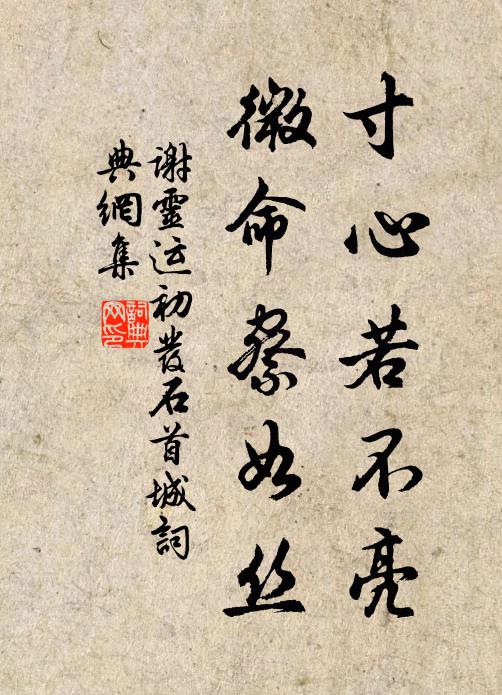 寸心若不亮
微命察如丝
谢灵运初发石首城词
典網集
詞典网印